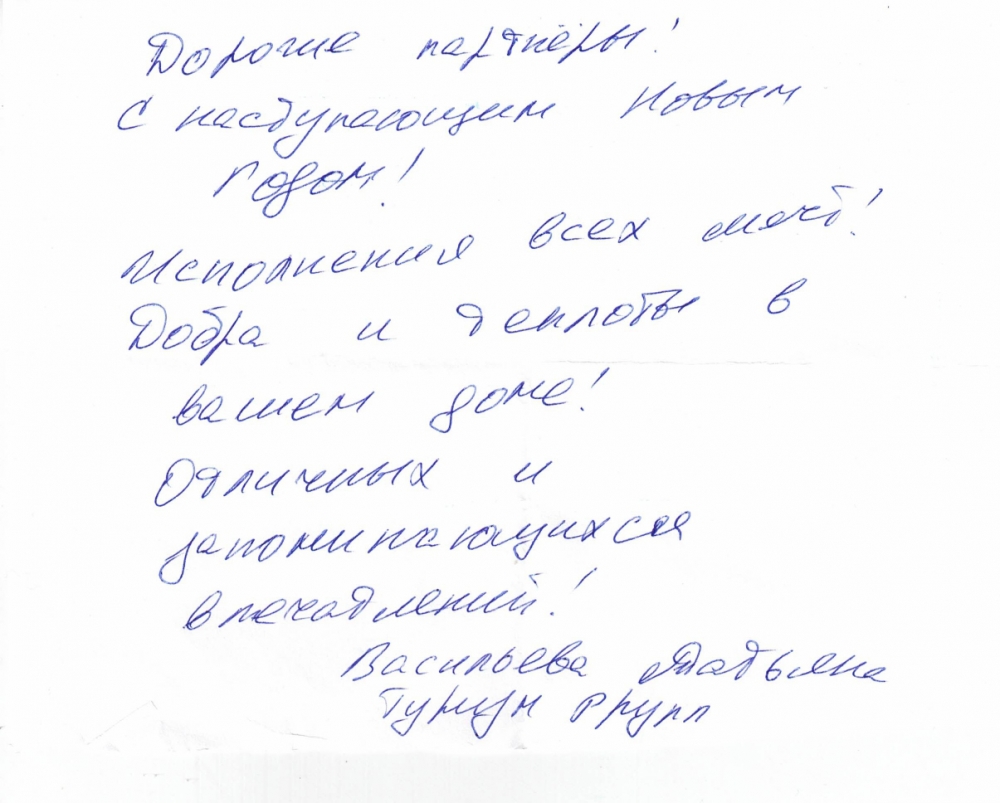 Дорогие партнёры!
С наступающим Новым
Годом!
Исполнения всех мечт!
Добра и теплоты в
вашем доме!
Отличных и
запоминающихся
впечатлений!
Васильева Татьяна
Групп